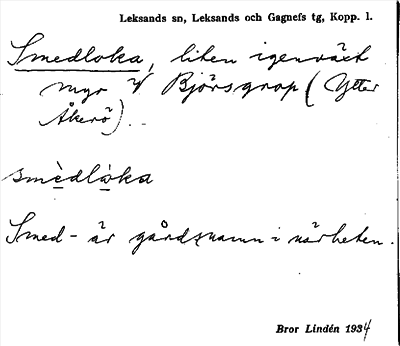 Leksands sn, Leksands och Gagnefs tg, Kopp. l.
Smedloka, liten igenväxt
myr V Björsgrop (Ytter
Åkerö).
smèdlòka
Smed- är gårdsnamn i närheten.
Bror Lindén 1934